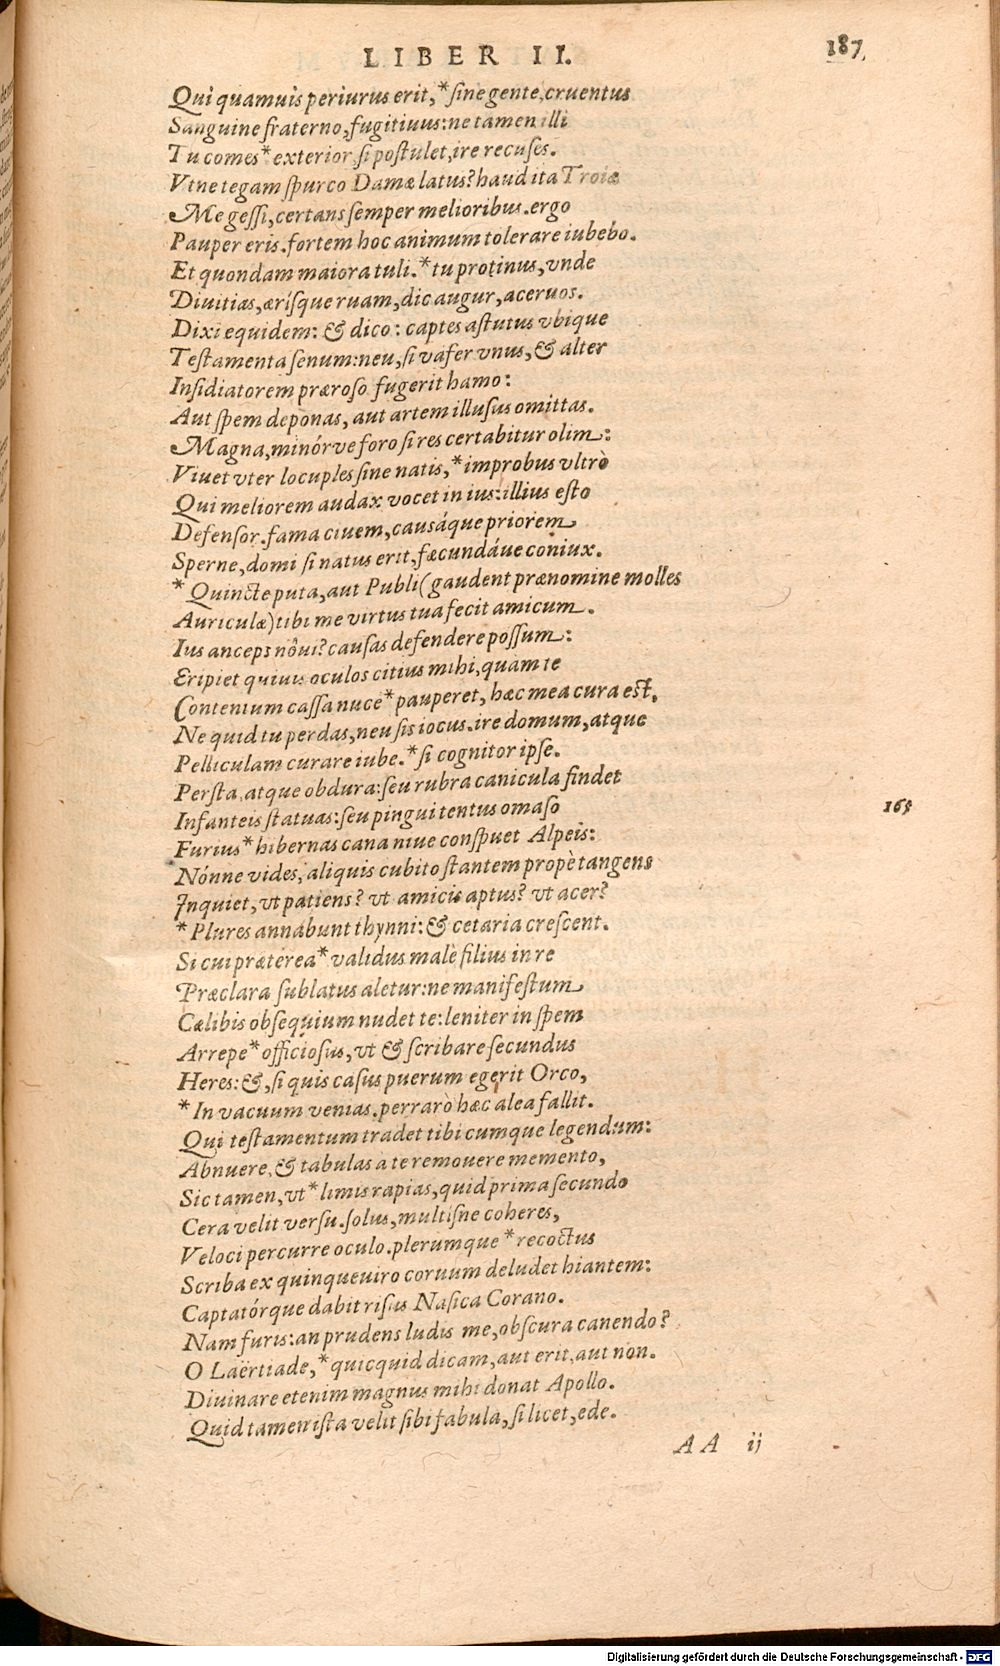 LIBER II.
187
Qui quamuis periurus erit,* sine gente, cruentus
Sanguine fraterno, fugitiuus: ne tamen illi
Tu comes* exterior, si postulet, ire recuses.
Vtne tegam spurco Damæ latus? haud ita Troiæ
Me gessi, certans semper melioribus. ergo
Pauper eris. fortem hoc animum tolerare iubebo.
Et quondam maiora tuli.* tu protinus, vnde
Diuitias, ærísque ruam, dic augur, aceruos.
Dixi equidem: & dico: captes astutus vbique
Testamenta senum: neu, si vafer vnus, & alter
Insidiatorem præroso fugerit hamo:
Aut spem deponas, aut artem illusus omittas.
Magna, minórve foro si res certabitur olim:
Viuet vter locuples sine natis,* improbus vltrò
Qui meliorem audax vocet in ius: illius esto
Defensor. fama ciuem, causáque priorem
Sperne, domi si natus erit, fæcundáue coniux.
* Quincte puta, aut Publi (gaudent prænomine molles
Auriculæ) tibi me virtus tua fecit amicum.
Ius anceps nôui? causas defendere possum:
Eripiet quiuis oculos citius mihi, quam te
Contentum cassa nuce* pauperet, hæc mea cura est,
Ne quid tu perdas, neu sis iocus. ire domum, atque
Pelliculam curare iube.* si cognitor ipse.
Persta, atque obdura: seu rubra canicula findet
Infanteis statuas: seu pingui tentus omaso
165
Furius* hibernas cana niue conspuet Alpeis:
Nónne vides, aliquis cubito stantem propè tangens
Inquiet, vt patiens? vt amicis aptus? vt acer?
* Plures annabunt thynni: & cetaria crescent.
Si cui præterea* validus malè filius in re
Præclara sublatus aletur: ne manifestum
Cælibis obsequium nudet te: leniter in spem
Arrepe* officiosus, vt & scribare secundus
Heres: &, si quis casus puerum egerit Orco,
* In vacuum venias. perrarò hæc alea fallit.
Qui testamentum tradet tibi cumque legendum:
Abnuere, & tabulas a te remouere memento,
Sic tamen, vt* limis rapias, quid prima secundo
Cera velit versu. solus, multísne coheres,
Veloci percurre oculo. plerumque* recoctus
Scriba ex quinqueuiro coruum deludet hiantem:
Captatórque dabit risus Nasica Corano.
Nam furis: an prudens ludis me, obscura canendo?
O Laërtiade,* quicquid dicam, aut erit, aut non.
Diuinare etenim magnus mihi donat Apollo.
Quid tamen ista velit sibi fabula, si licet, ede.
AA ij
Digitalisierung gefördert durch die Deutsche Forschungsgemeinschaft - DFG